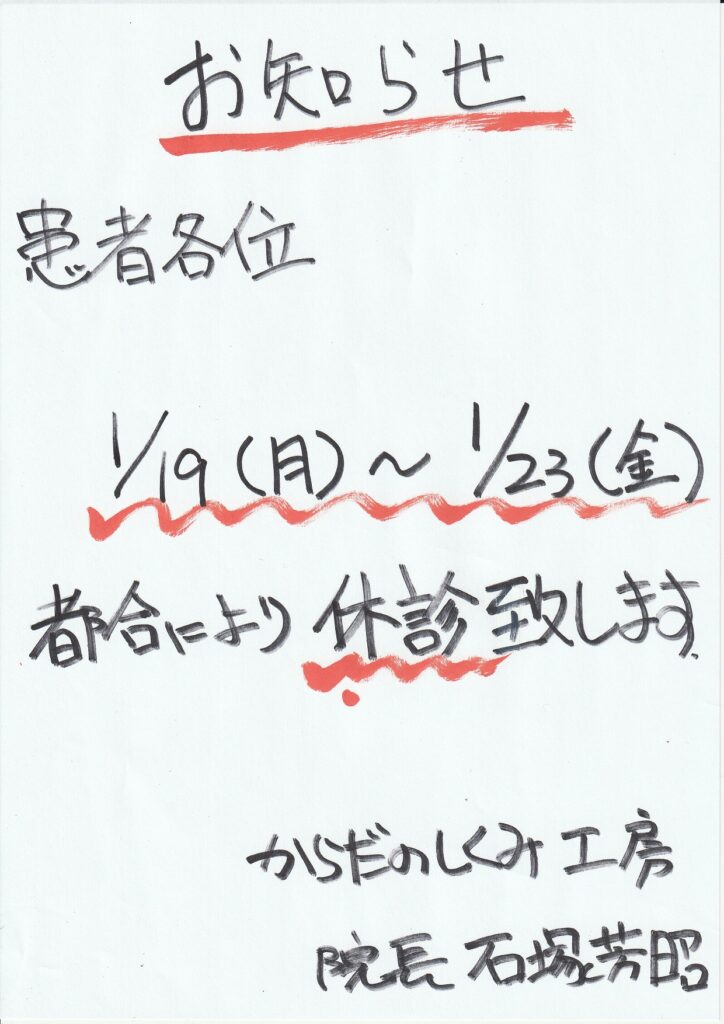 お知らせ
患者各位
1/19(月)~1/23(金)
都合により休診致します。
からだのしくみ工房
院長 石塚芳昭